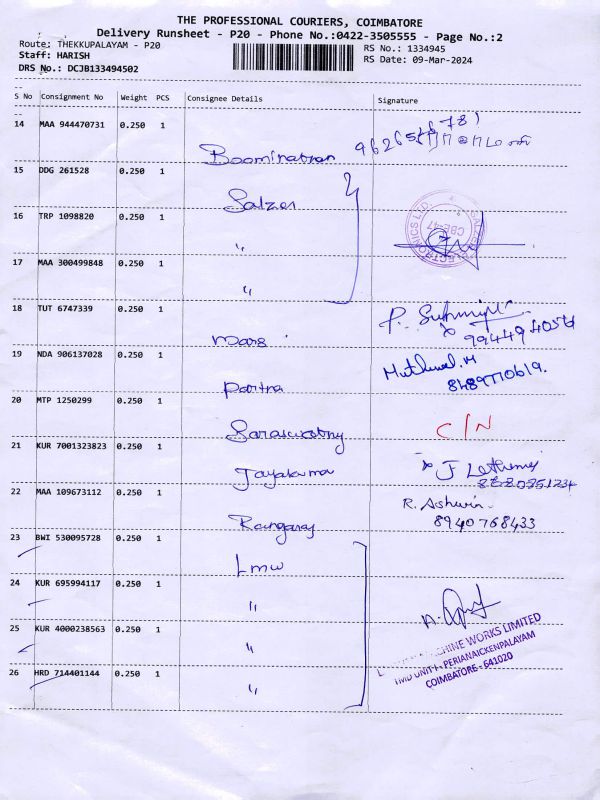 THE PROFESSIONAL COURIERS, COIMBATORE
Delivery Runsheet - P20 - Phone No.:0422-3505555 - Page No.:2
Route: THEKKUPALAYAM - P20
RS No.: 1334945
Staff: HARISH
RS Date: 09-Mar-2024
DRS No.: DCJB133494502
S No Consignment No Weight PCS Consignee Details Signature
14 MAA 944470731 0.250 1 Boominathan
15 DDG 261528 0.250 1 Salzer
16 TRP 1098820 0.250 1 "
17 MAA 300499848 0.250 1 "
18 TUT 6747339 0.250 1 P.
19 NDA 906137028 0.250 1 Pavithra Muthuvel.M
8489770619.
20 MTP 1250299 0.250 1 Saraswathy C/N
21 KUR 7001323823 0.250 1 Jayakumar J
22 MAA 109673112 0.250 1 Rangaraj R. Ashwin
8940768433
23 BWI 530095728 0.250 1 Lmw
24 KUR 695994117 0.250 1 "
25 KUR 4000238563 0.250 1 "
26 HRD 714401144 0.250 1 "
MACHINE WORKS LIMITED
UNIT I - PERIANAICKENPALAYAM
COIMBATORE - 641020